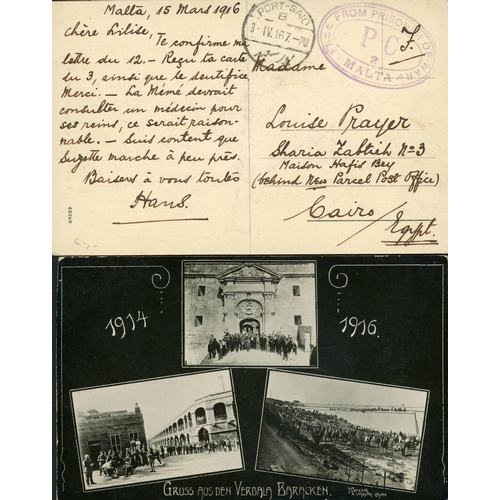 Malta, 15 Mars 1916
Chère Lilise,
Te confirme ma
lettre du 12. - Reçu ta carte
du 3, ainsi que le dentifrice
Merci. - La Mémé devrait
consulter un médecin pour
ses reins, ce serait raison-
nable. - Suis content que
Suzette marche à peu près.
Baisers à vous toutes
Hans.
64229
PORT-SAID
B
3-IV.16 7-PM
FREE FROM PRISONER OF WAR
P.C.
2
MALTA
Madame
Louise Prayer
Sharia Zabtieh No 3
Maison Hafis Bey
(behind New Parcel Post Office)
Cairo/
Egypt.
1914
1916.
GRUSS AUS DEN VERDALA BARACKEN.